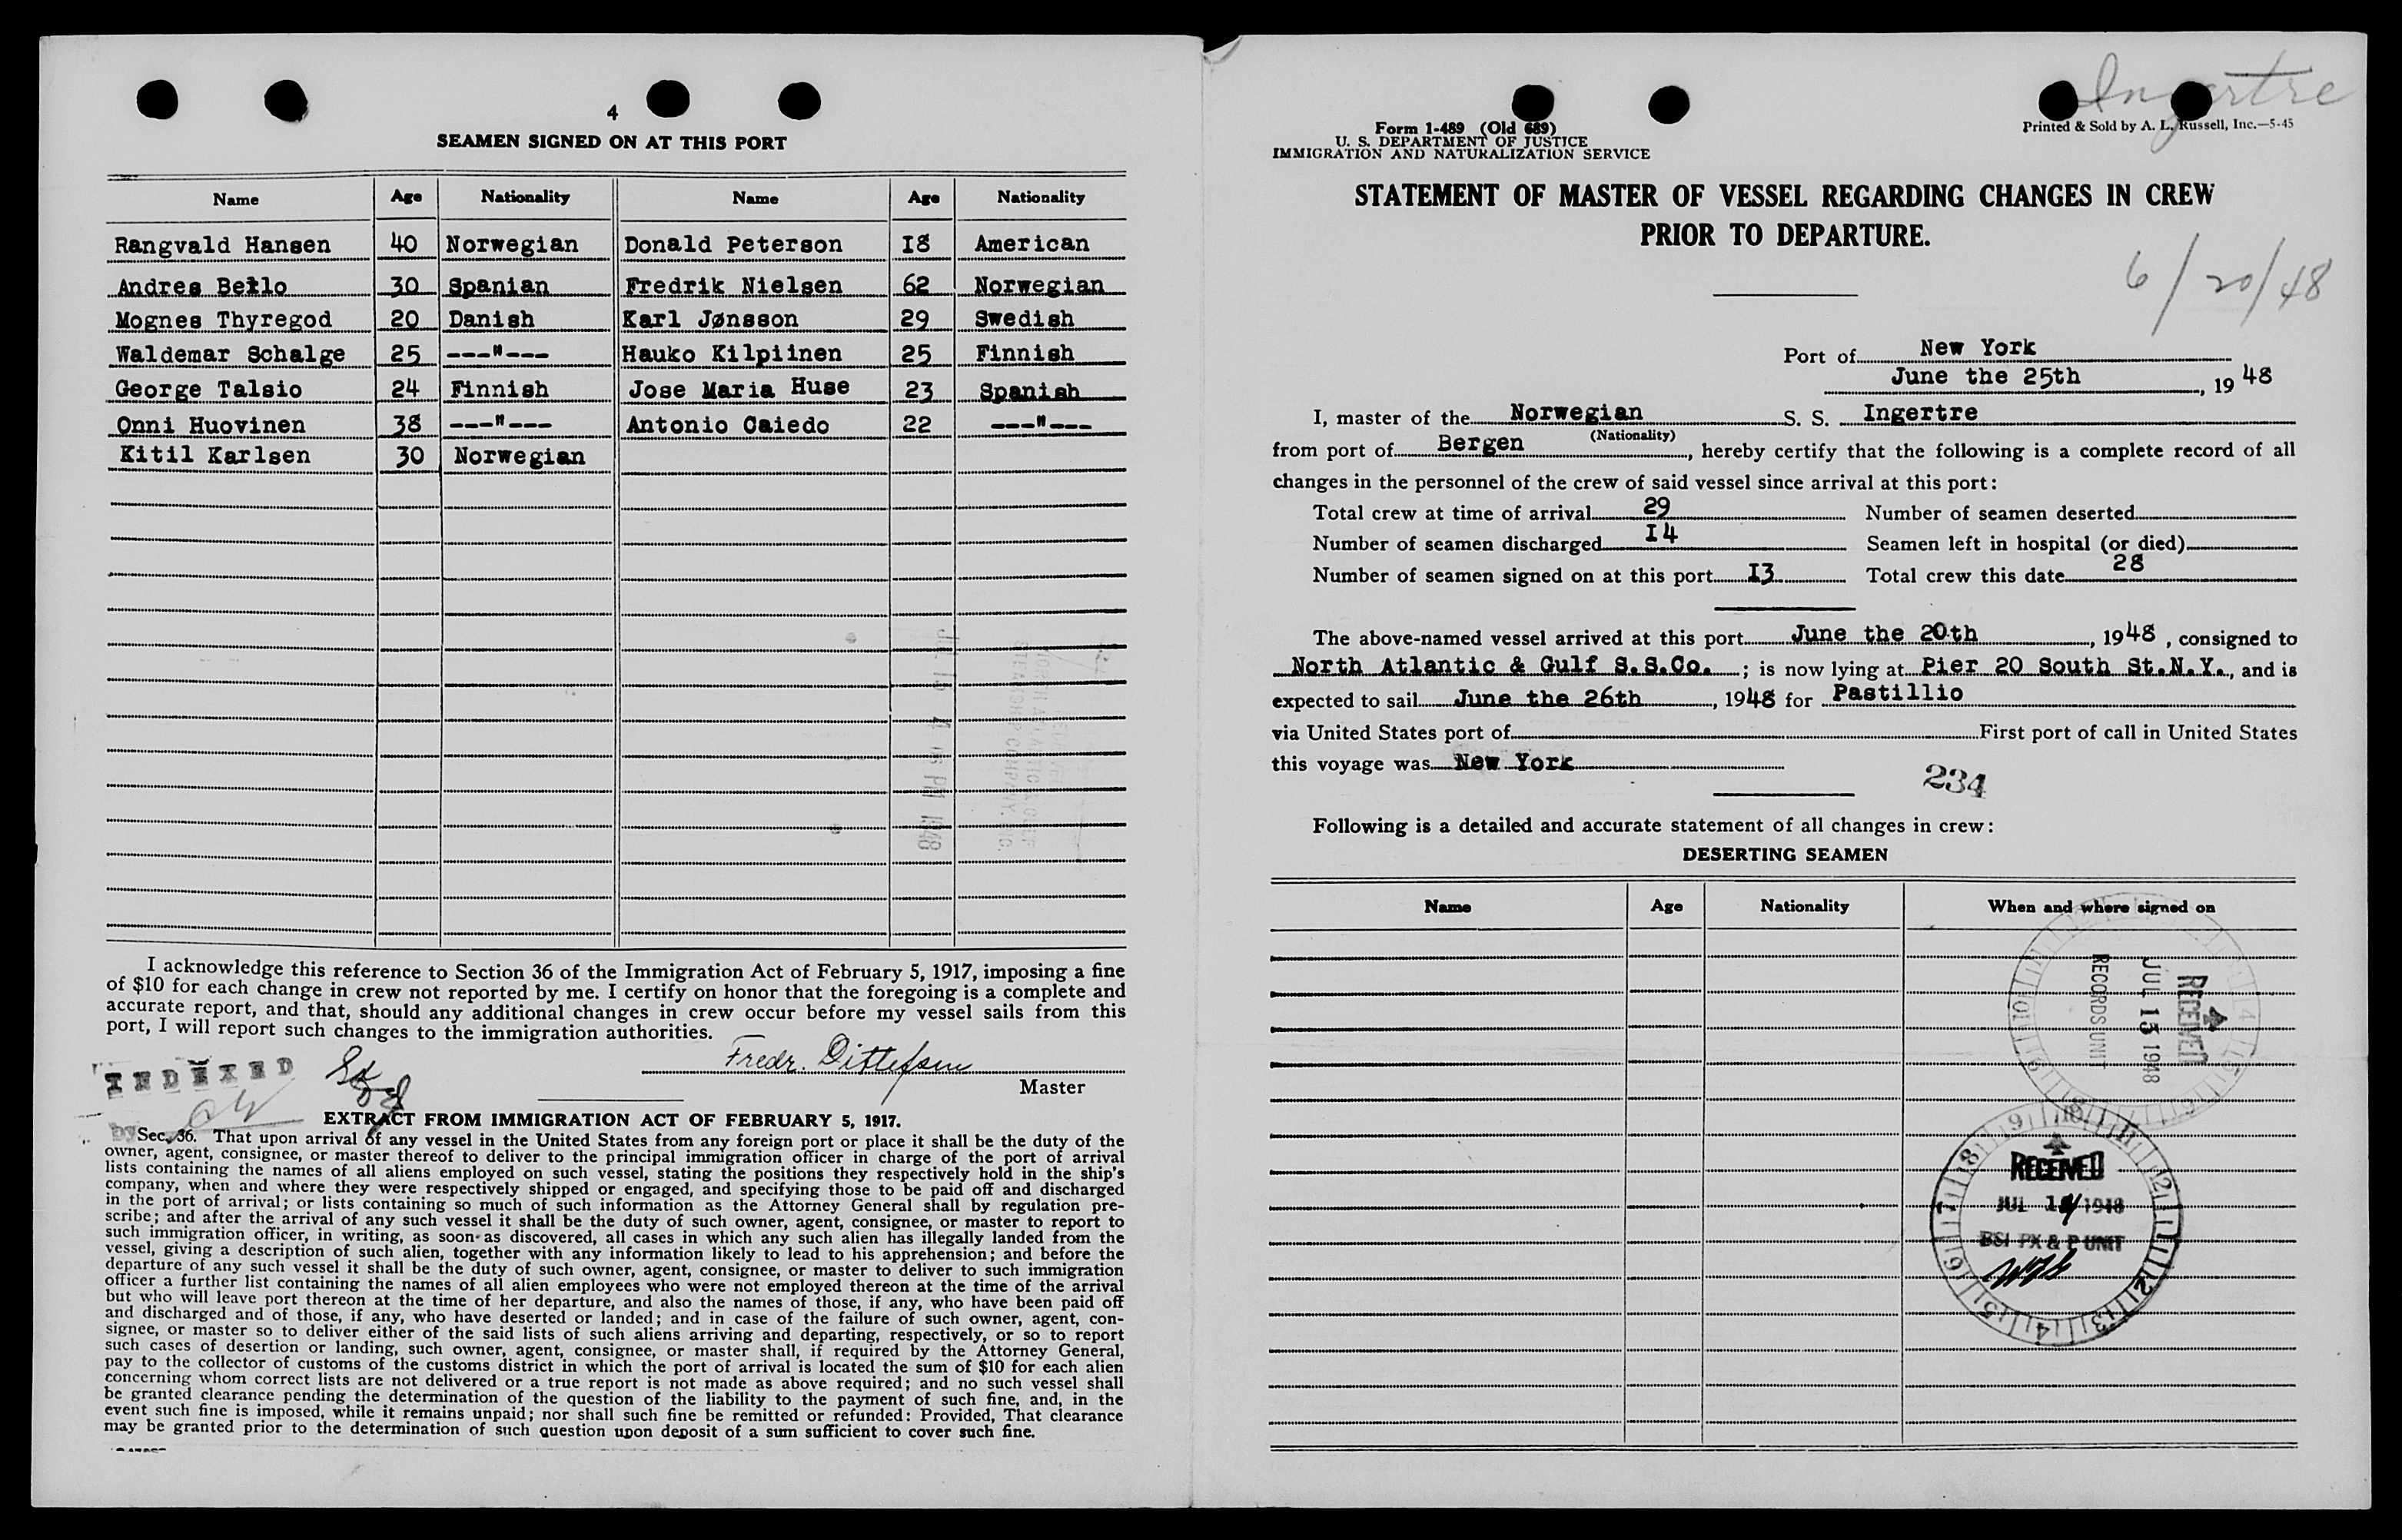 4
SEAMEN SIGNED ON AT THIS PORT
Name Age Nationality Name Age Nationality
Rangvald Hansen 40 Norwegian Donald Peterson 18 American
Andres Bello 30 Spanian Fredrik Nielsen 62 Norwegian
Mognes Thyregod 20 Danish Karl Jønsson 29 Swedish
Waldemar Schalge 25 ---"--- Hauko Kilpiinen 25 Finnish
George Talsio 24 Finnish Jose Maria Huse 23 Spanish
Onni Huovinen 38 ---"--- Antonio Caiedo 22 ---"---
Kitil Karlsen 30 Norwegian
I acknowledge this reference to Section 36 of the Immigration Act of February 5, 1917, imposing a fine
of $10 for each change in crew not reported by me. I certify on honor that the foregoing is a complete and
accurate report, and that, should any additional changes in crew occur before my vessel sails from this
port, I will report such changes to the immigration authorities.
Fredr. Dittefsen
Master
INDEXED
by
EXTRACT FROM IMMIGRATION ACT OF FEBRUARY 5, 1917.
Sec. 36. That upon arrival of any vessel in the United States from any foreign port or place it shall be the duty of the
owner, agent, consignee, or master thereof to deliver to the principal immigration officer in charge of the port of arrival
lists containing the names of all aliens employed on such vessel, stating the positions they respectively hold in the ship's
company, when and where they were respectively shipped or engaged, and specifying those to be paid off and discharged
in the port of arrival; or lists containing so much of such information as the Attorney General shall by regulation pre-
scribe; and after the arrival of any such vessel it shall be the duty of such owner, agent, consignee, or master to report to
such immigration officer, in writing, as soon as discovered, all cases in which any such alien has illegally landed from the
vessel, giving a description of such alien, together with any information likely to lead to his apprehension; and before the
departure of any such vessel it shall be the duty of such owner, agent, consignee, or master to deliver to such immigration
officer a further list containing the names of all alien employees who were not employed thereon at the time of the arrival
but who will leave port thereon at the time of her departure, and also the names of those, if any, who have been paid off
and discharged and of those, if any, who have deserted or landed; and in case of the failure of such owner, agent, con-
signee, or master so to deliver either of the said lists of such aliens arriving and departing, respectively, or so to report
such cases of desertion or landing, such owner, agent, consignee, or master shall, if required by the Attorney General,
pay to the collector of customs of the customs district in which the port of arrival is located the sum of $10 for each alien
concerning whom correct lists are not delivered or a true report is not made as above required; and no such vessel shall
be granted clearance pending the determination of the question of the liability to the payment of such fine, and, in the
event such fine is imposed, while it remains unpaid; nor shall such fine be remitted or refunded: Provided, That clearance
may be granted prior to the determination of such question upon deposit of a sum sufficient to cover such fine.
Ingertre
Form 1-489 (Old 689)
U. S. DEPARTMENT OF JUSTICE
IMMIGRATION AND NATURALIZATION SERVICE
Printed & Sold by A. L. Russell, Inc.—5-45
STATEMENT OF MASTER OF VESSEL REGARDING CHANGES IN CREW
PRIOR TO DEPARTURE.
6/20/48
Port of New York
June the 25th, 19 48
I, master of the Norwegian S. S. Ingertre
(Nationality)
from port of Bergen, hereby certify that the following is a complete record of all
changes in the personnel of the crew of said vessel since arrival at this port:
Total crew at time of arrival 29 Number of seamen deserted
Number of seamen discharged 14 Seamen left in hospital (or died)
Number of seamen signed on at this port 13 Total crew this date 28
The above-named vessel arrived at this port June the 20th, 1948, consigned to
North Atlantic & Gulf S.S.Co.; is now lying at Pier 20 South St.N.Y., and is
expected to sail June the 26th, 1948 for Pastillio
via United States port of First port of call in United States
this voyage was New York
234
Following is a detailed and accurate statement of all changes in crew:
DESERTING SEAMEN
Name Age Nationality When and where signed on
RECEIVED
JUL 15 1948
RECORDS UNIT
RECEIVED
JUL 14 1948
BSI PX & P UNIT